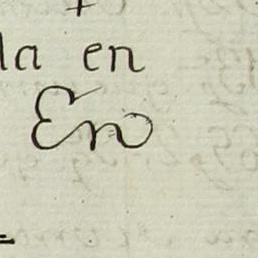 la en
En